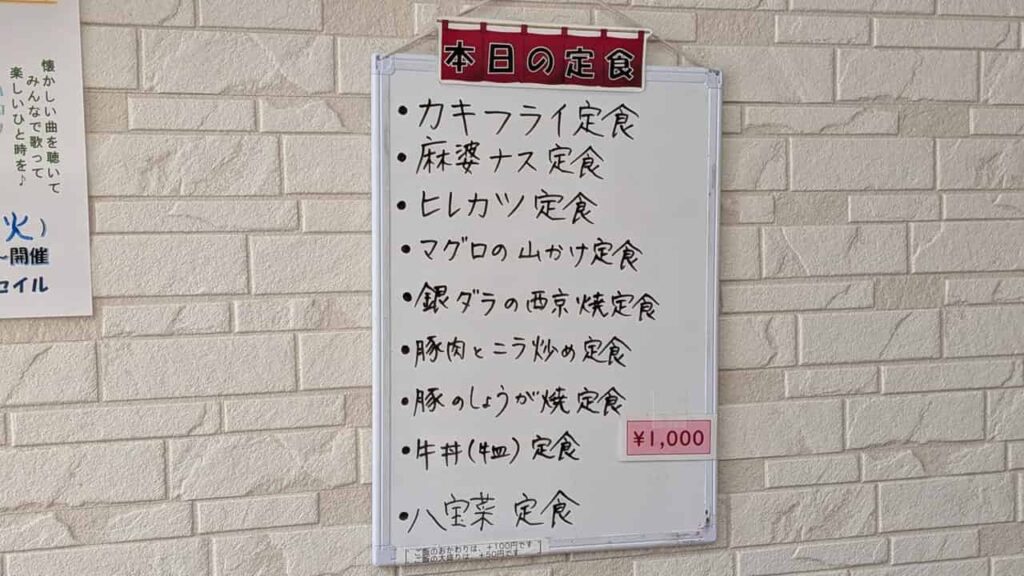 本日の定食
・カキフライ定食
・麻婆ナス定食
・ヒレカツ定食
・マグロの山かけ定食
・銀ダラの西京焼定食
・豚肉とニラ炒め定食
・豚のしょうが焼定食
・牛丼(牛皿)定食
¥1,000
・八宝菜 定食
ご飯のおかわりは、+100円です
ご飯の大盛りは、+50円です
懐かしい曲を聴いて
みんなで歌って
楽しいひと時を♪
火)
~開催
セイル